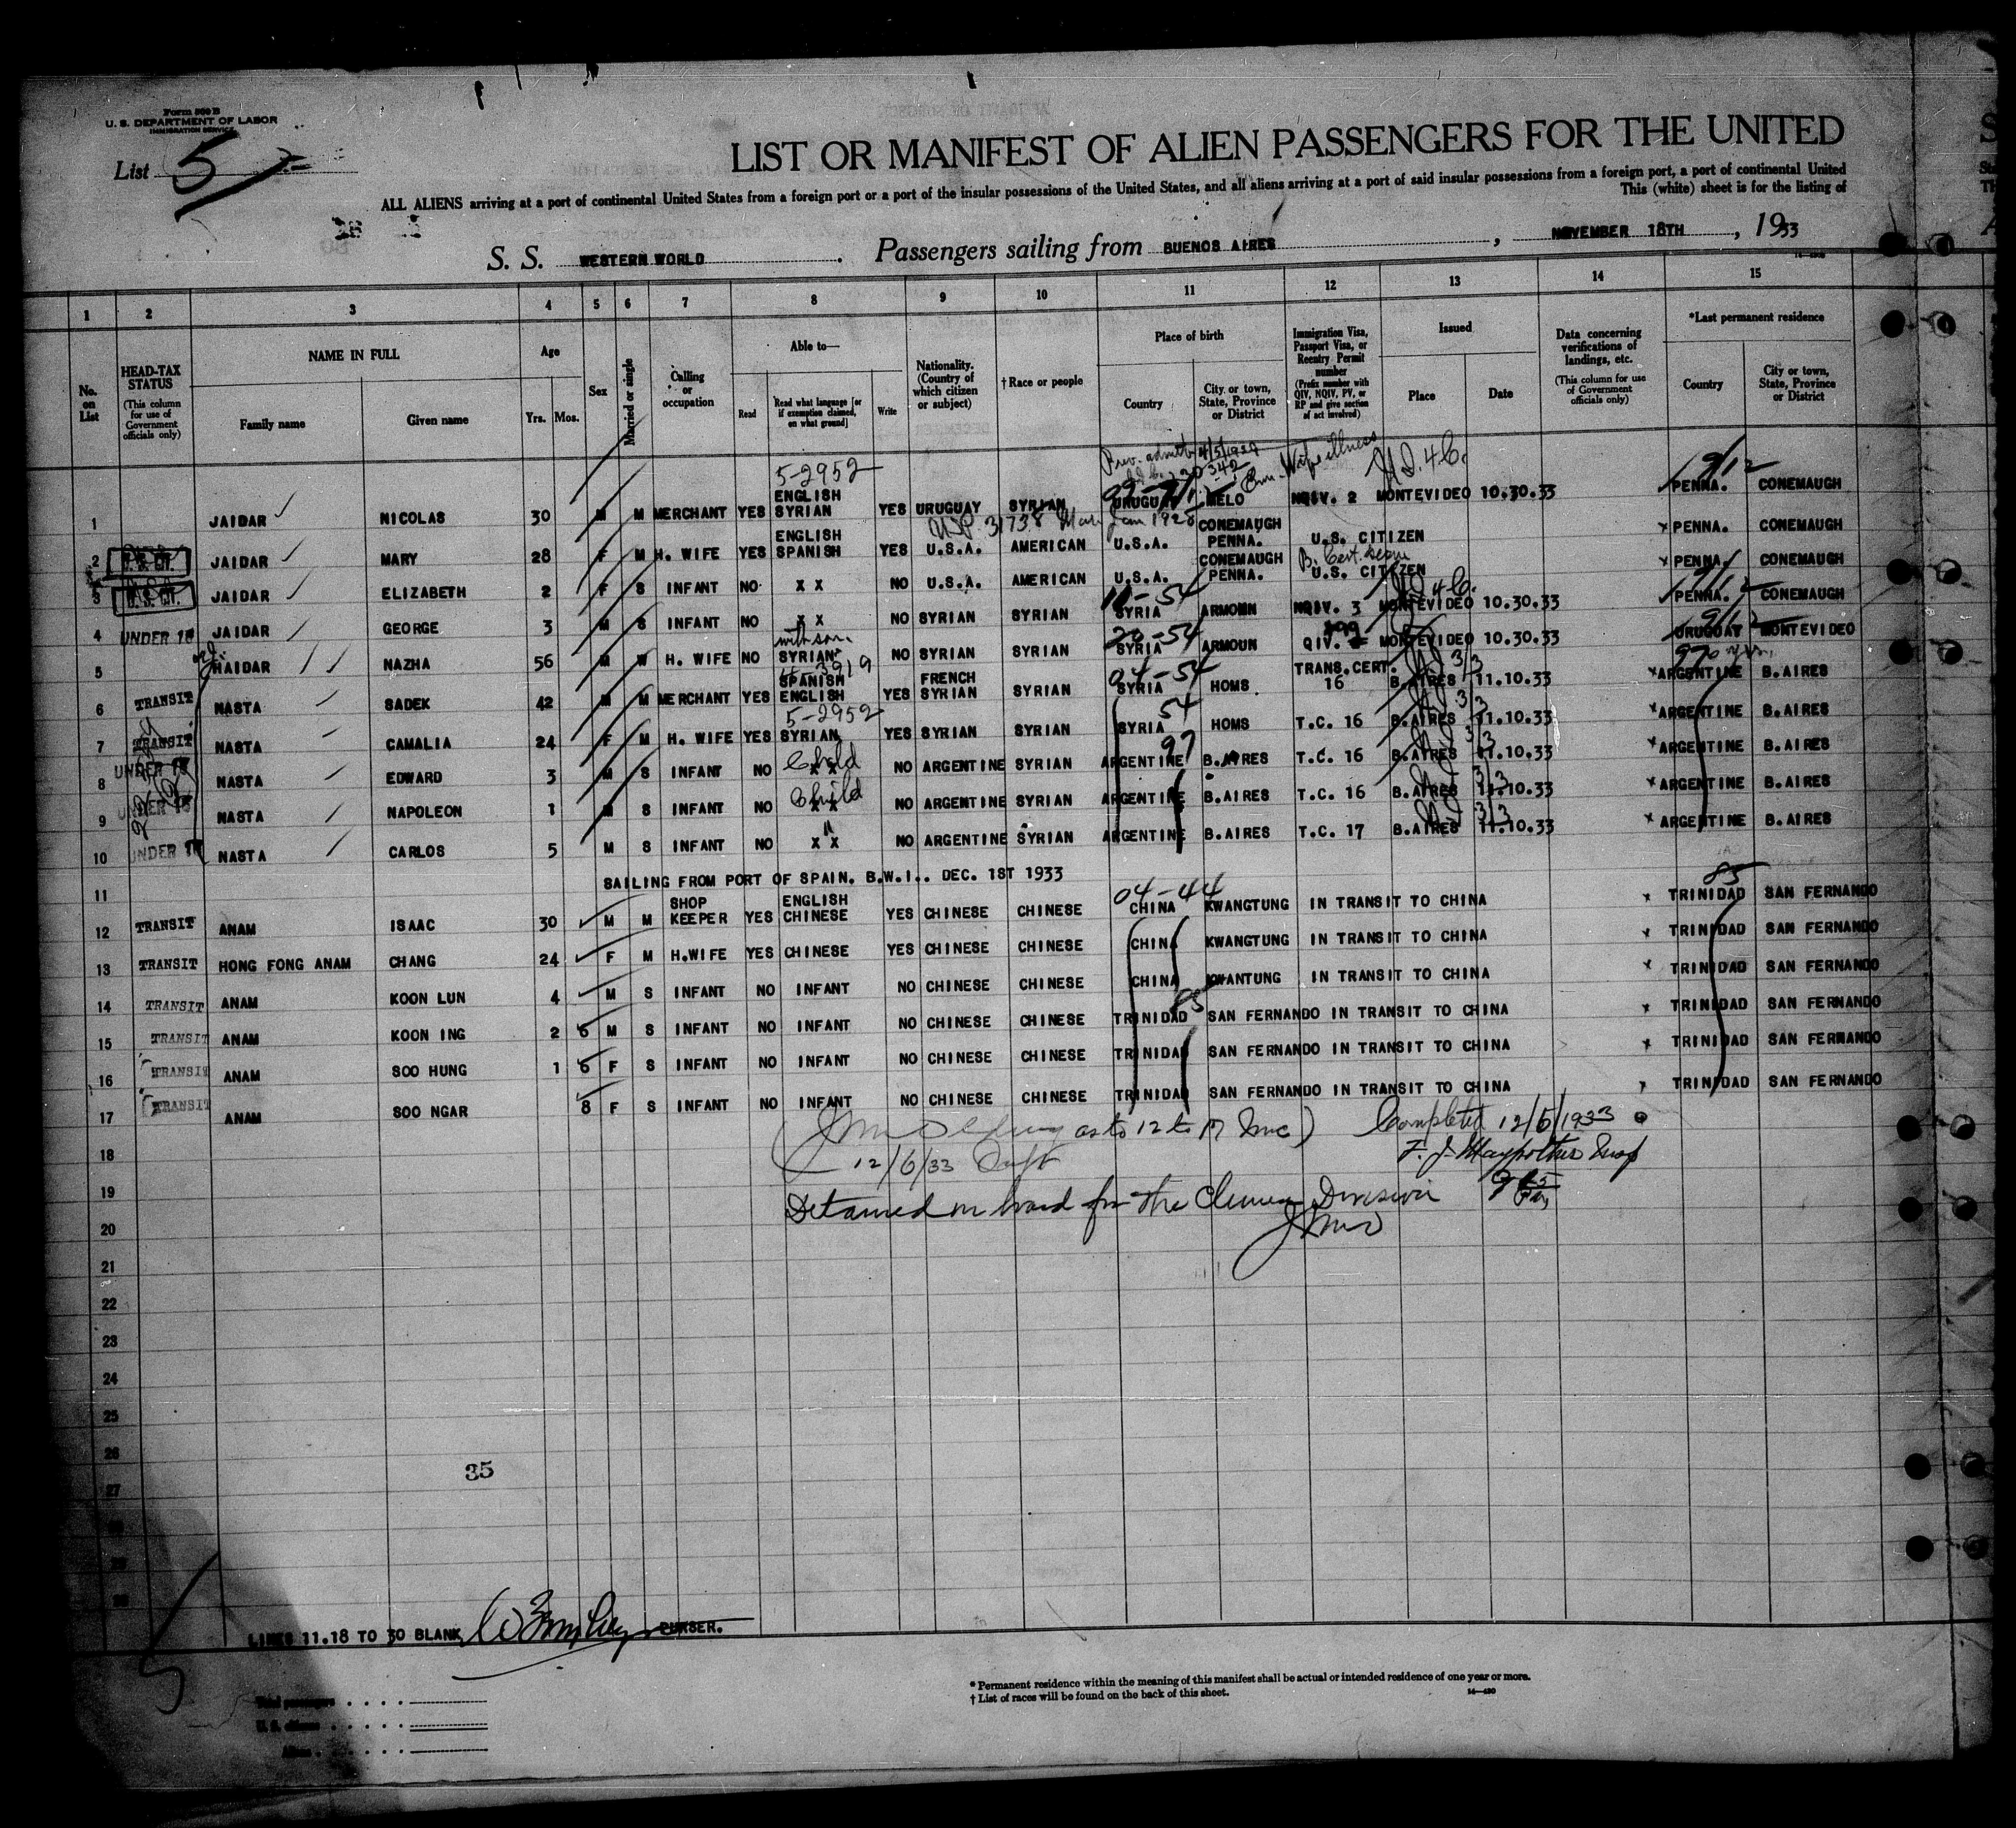 Form 500 B
U. S. DEPARTMENT OF LABOR
IMMIGRATION SERVICE
List 5
LIST OR MANIFEST OF ALIEN PASSENGERS FOR THE UNITED
ALL ALIENS arriving at a port of continental United States from a foreign port or a port of the insular possessions of the United States, and all aliens arriving at a port of said insular possessions from a foreign port, a port of continental United
This (white) sheet is for the listing of
S. S. WESTERN WORLD. Passengers sailing from BUENOS AIRES, NOVEMBER 18TH, 1933
1 2 3 4 5 6 7 8 9 10 11 12 13 14 15
No. on List
HEAD-TAX STATUS (This column for use of Government officials only)
NAME IN FULL Family name Given name
Age Yrs. Mos.
Sex
Married or single
Calling or occupation
Able to— Read Read what language [or if exemption claimed, on what ground] Write
Nationality. (Country of which citizen or subject)
†Race or people
Place of birth Country City or town, State, Province or District
Immigration Visa, Passport Visa, or Reentry Permit number (Prefix number with QIV, NQIV, PV, or RP and give section of act involved)
Issued Place Date
Data concerning verifications of landings, etc. (This column for use of Government officials only)
*Last permanent residence Country City or town, State, Province or District
5-2952
1 JAIDAR NICOLAS 30 M M MERCHANT YES ENGLISH SYRIAN YES URUGUAY SYRIAN URUGUAY MELO NQIV. 2 MONTEVIDEO 10.30.33 PENNA. CONEMAUGH
2 U.S. CIT. JAIDAR MARY 28 F M H. WIFE YES ENGLISH SPANISH YES U.S.A. AMERICAN U.S.A. CONEMAUGH PENNA. U.S. CITIZEN PENNA. CONEMAUGH
3 U.S. CIT. JAIDAR ELIZABETH 2 F S INFANT NO X X NO U.S.A. AMERICAN U.S.A. CONEMAUGH PENNA. U.S. CITIZEN PENNA. CONEMAUGH
4 UNDER 16 JAIDAR GEORGE 3 M S INFANT NO X X NO SYRIAN SYRIAN SYRIA ARMOUN NQIV. 3 MONTEVIDEO 10.30.33 PENNA. CONEMAUGH
5 HAIDAR NAZHA 56 M W H. WIFE NO SYRIAN NO SYRIAN SYRIAN SYRIA ARMOUN QIV. MONTEVIDEO 10.30.33 URUGUAY MONTEVIDEO
6 TRANSIT NASTA SADEK 42 M M MERCHANT YES SPANISH ENGLISH YES FRENCH SYRIAN SYRIAN SYRIA HOMS TRANS.CERT. 16 B.AIRES 11.10.33 ARGENTINE B.AIRES
5-2952
7 TRANSIT NASTA CAMALIA 24 F M H. WIFE YES SYRIAN YES SYRIAN SYRIAN SYRIA HOMS T.C. 16 B.AIRES 11.10.33 ARGENTINE B.AIRES
8 UNDER 16 NASTA EDWARD 3 M S INFANT NO Child X X NO ARGENTINE SYRIAN ARGENTINE B.AIRES T.C. 16 B.AIRES 11.10.33 ARGENTINE B.AIRES
9 UNDER 16 NASTA NAPOLEON 1 M S INFANT NO Child X X NO ARGENTINE SYRIAN ARGENTINE B.AIRES T.C. 16 B.AIRES 11.10.33 ARGENTINE B.AIRES
10 UNDER 16 NASTA CARLOS 5 M S INFANT NO " X X NO ARGENTINE SYRIAN ARGENTINE B.AIRES T.C. 17 B.AIRES 11.10.33 ARGENTINE B.AIRES
11 SAILING FROM PORT OF SPAIN. B.W.I.. DEC. 1ST 1933
12 TRANSIT ANAM ISAAC 30 M M SHOP KEEPER YES ENGLISH CHINESE YES CHINESE CHINESE CHINA KWANGTUNG IN TRANSIT TO CHINA TRINIDAD SAN FERNANDO
13 TRANSIT HONG FONG ANAM CHANG 24 F M H.WIFE YES CHINESE YES CHINESE CHINESE CHINA KWANGTUNG IN TRANSIT TO CHINA TRINIDAD SAN FERNANDO
14 TRANSIT ANAM KOON LUN 4 M S INFANT NO INFANT NO CHINESE CHINESE CHINA KWANTUNG IN TRANSIT TO CHINA TRINIDAD SAN FERNANDO
15 TRANSIT ANAM KOON ING 2 6 M S INFANT NO INFANT NO CHINESE CHINESE TRINIDAD SAN FERNANDO IN TRANSIT TO CHINA TRINIDAD SAN FERNANDO
16 TRANSIT ANAM SOO HUNG 1 6 F S INFANT NO INFANT NO CHINESE CHINESE TRINIDAD SAN FERNANDO IN TRANSIT TO CHINA TRINIDAD SAN FERNANDO
17 TRANSIT ANAM SOO NGAR 8 F S INFANT NO INFANT NO CHINESE CHINESE TRINIDAD SAN FERNANDO IN TRANSIT TO CHINA TRINIDAD SAN FERNANDO
as to 12 to 17 Inc) Completed 12/6/1933
18 12/6/33
19 Detained on board for the Chinese Division
20
21
22
23
24
25
26
35
27
LINES 11.18 TO 30 BLANK PURSER.
* Permanent residence within the meaning of this manifest shall be actual or intended residence of one year or more.
† List of races will be found on the back of this sheet.
Total passengers
U. S. citizens
Aliens